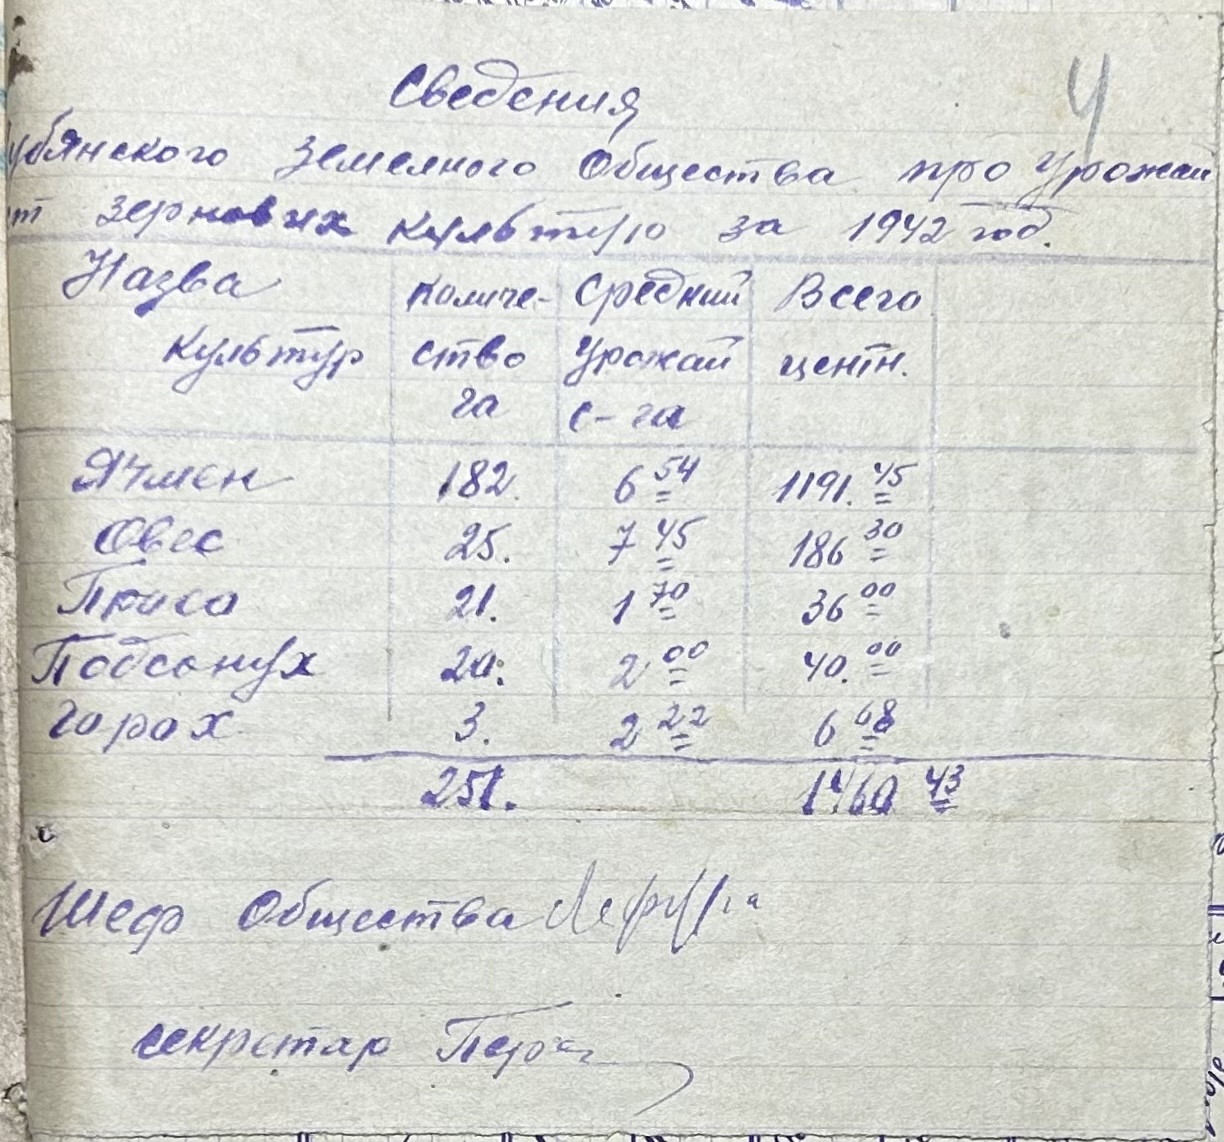 Сведения
4
убянского Земелного Общества про Урожай
от зернових культур за 1942 год.
Назва количе- Средний Всего
культур ство Урожай центн.
га с-га
Ячмен 182. 6 54 1191. 45
Овес 25. 7 45 186 30
Проса 21. 1 70 36 00
Подсонух 20. 2 00 40. 00
Горох 3. 2 22 6 68
251. 1460 43
Шеф Общества
секретар